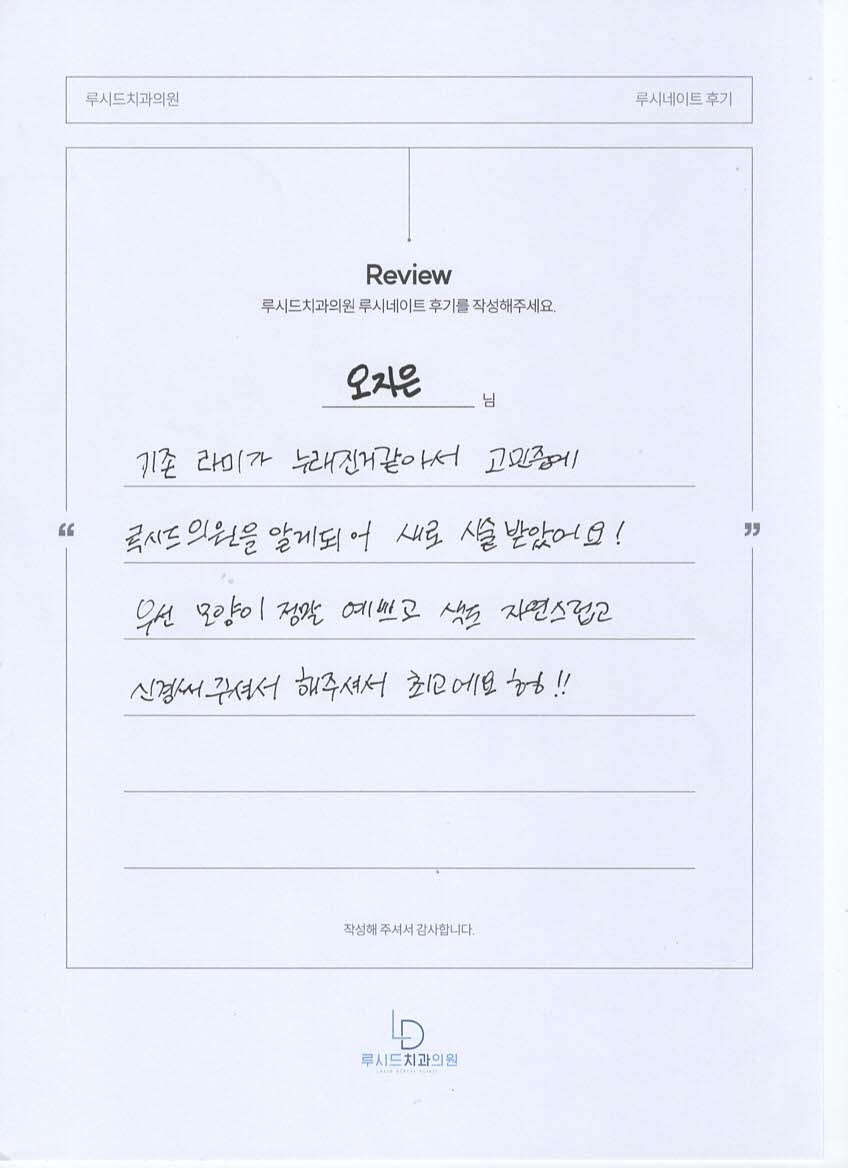 루시드치과의원 루시네이트 후기
Review
루시드치과의원 루시네이트 후기를 작성해주세요.
오지은 님
기존 라미가 누래진거같아서 고민중에
루시드의원을 알게되어 새로 시술받았어요!
우선 모양이 정말 예쁘고 색도 자연스럽고
신경써주셔서 해주셔서 최고에요 ㅎㅎ!!
작성해 주셔서 감사합니다.
LD
루시드치과의원